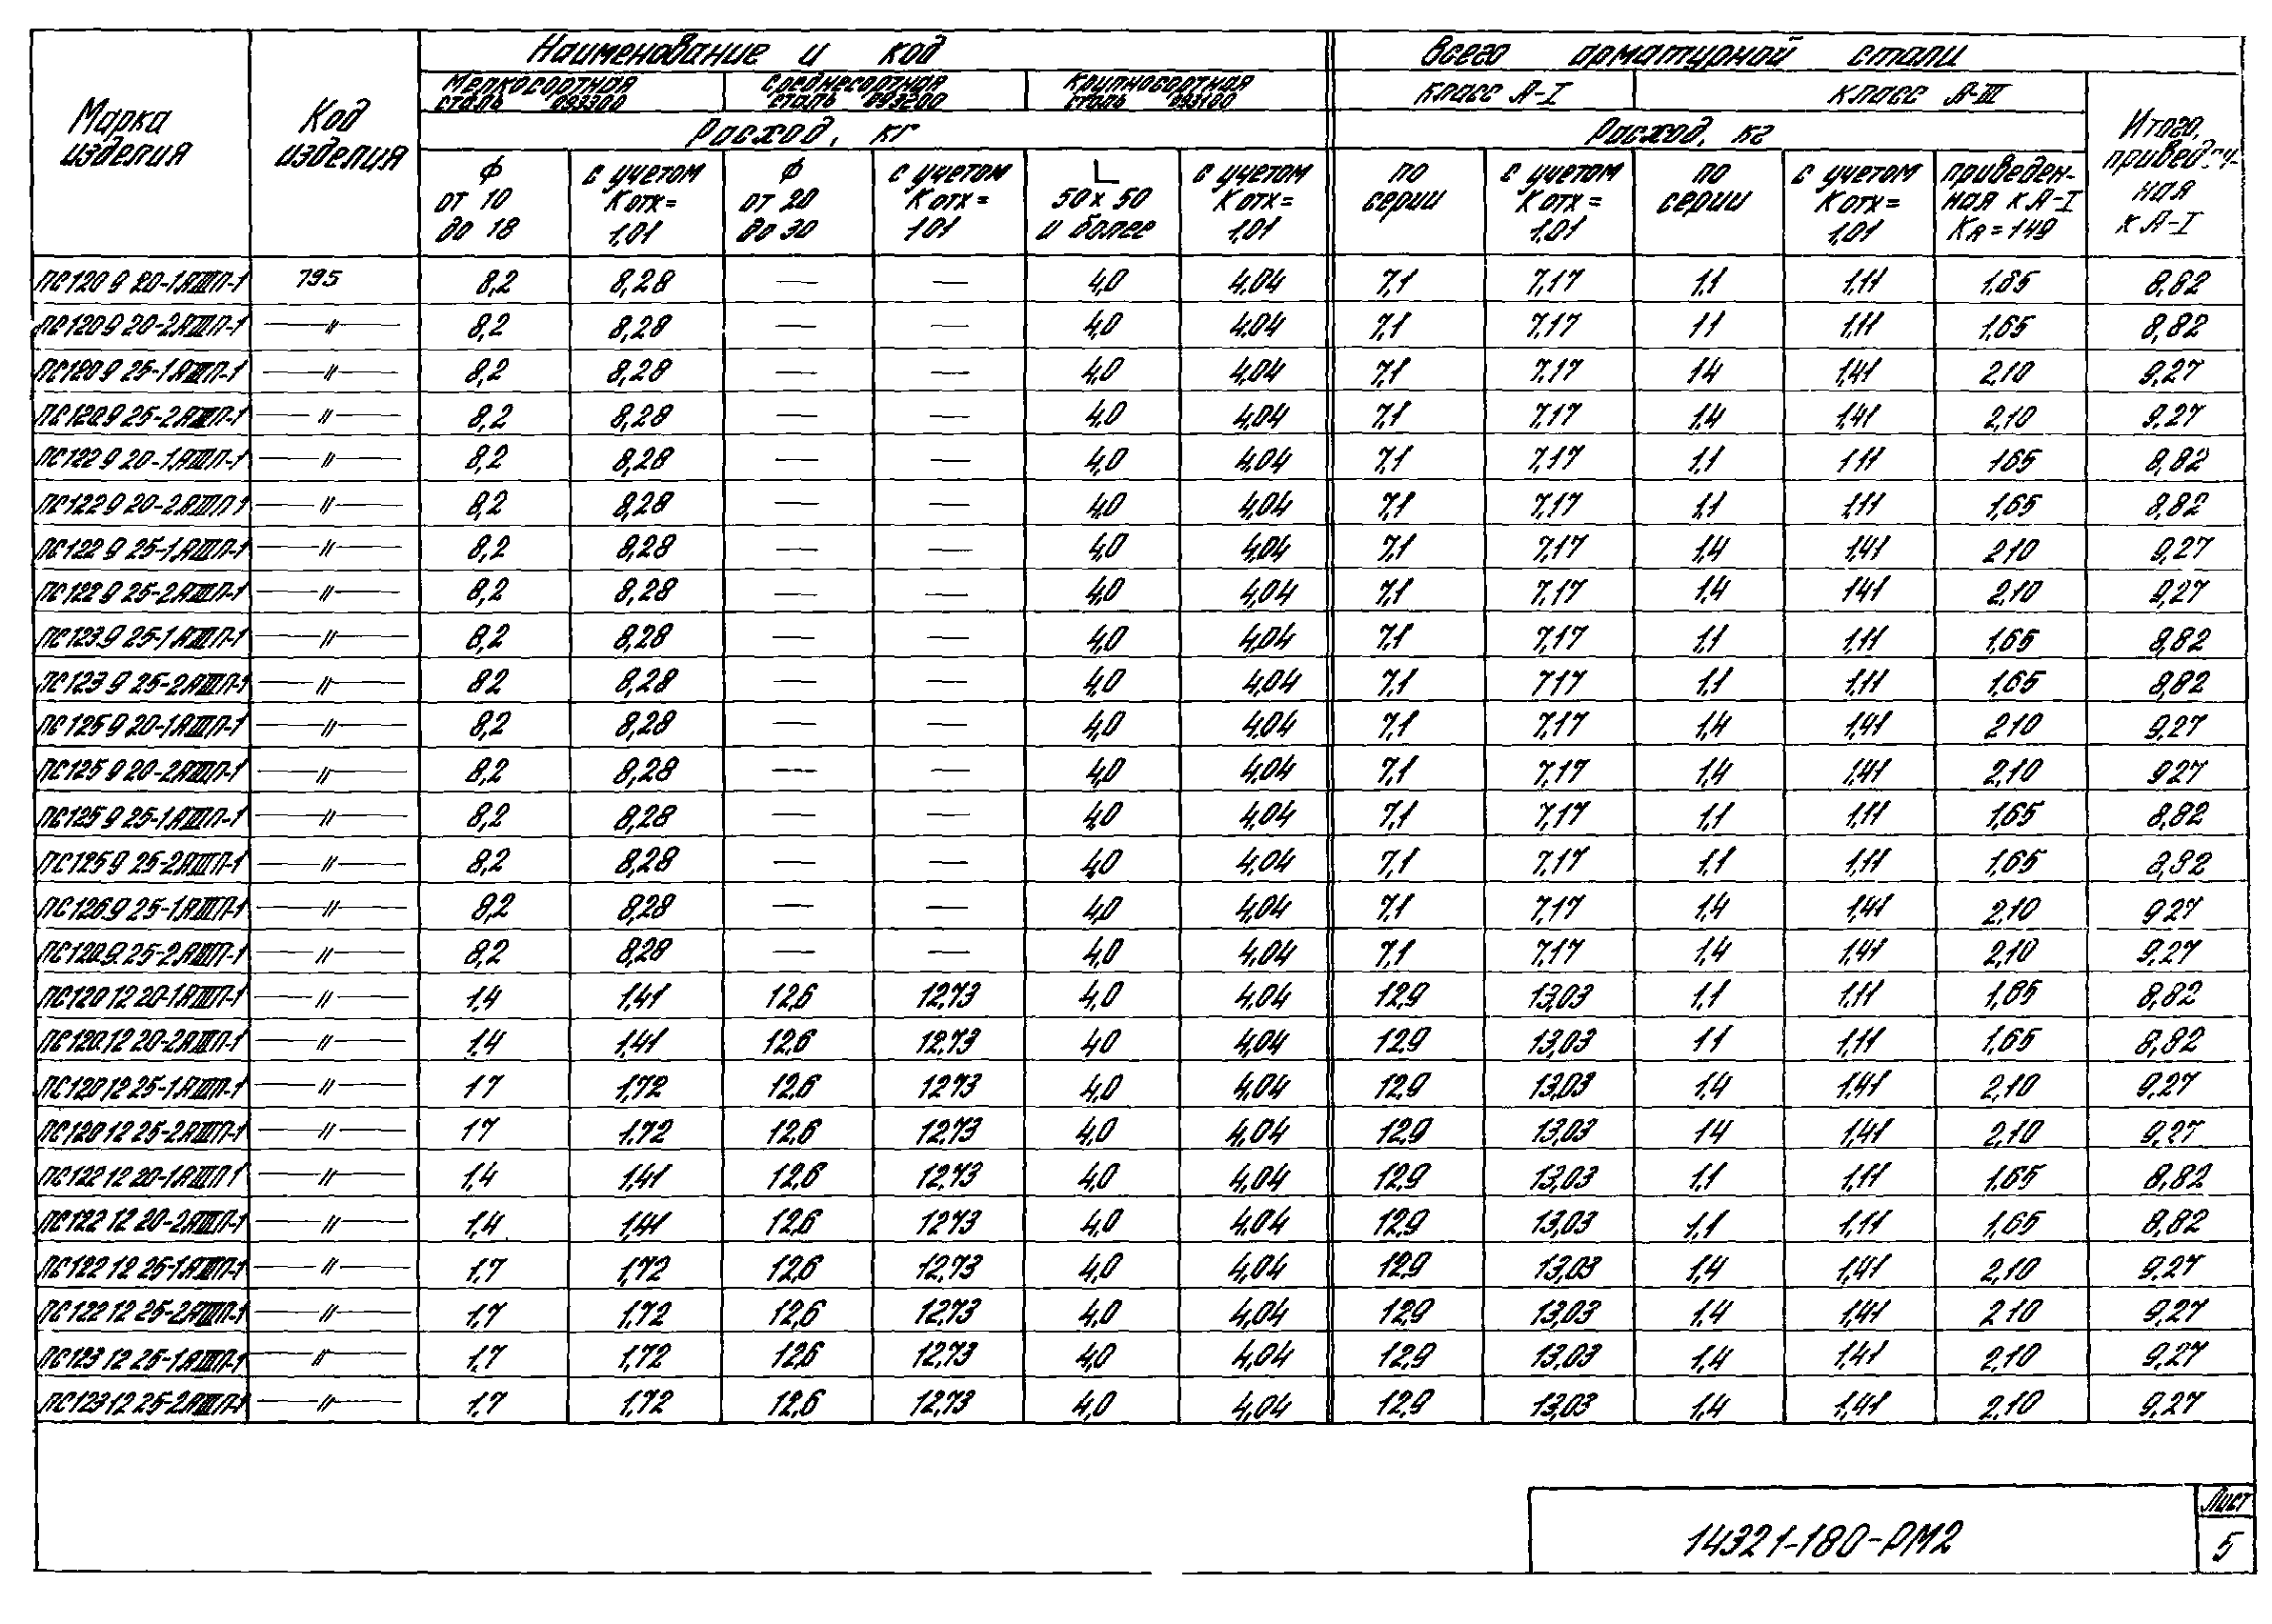 Марка изделия
Код изделия
Наименование и код
Всего арматурной стали
Мелкосортная сталь 093300
Среднесортная сталь 093200
Крупносортная сталь 093100
класс А-I
класс А-III
Итого, приведен-ная к А-I
Расход, кг
Расход, кг
ϕ от 10 до 18
с учетом Kотх= 1,01
ϕ от 20 до 30
с учетом Kотх= 1 01
L 50×50 и более
с учетом Kотх= 1,01
по серии
с учетом Kотх= 1,01
по серии
с учетом Kотх= 1,01
приведен-ная к А-I Kа=149
ПС120 9 20-1АIIIП-1 795 8,2 8,28 — — 4,0 4,04 7,1 7,17 1,1 1,11 1,65 8,82
ПС120.9 20-2АIIIП-1 —〃— 8,2 8,28 — — 4,0 4,04 7,1 7,17 1 1 1,11 1,65 8,82
ПС120 9 25-1АIIIП-1 —〃— 8,2 8,28 — — 4,0 4,04 7,1 7,17 1 4 1,41 2,10 9,27
ПС120.9 25-2АIIIП-1 —〃— 8,2 8,28 — — 4,0 4,04 7,1 7,17 1,4 1,41 2,10 9,27
ПС122 9 20-1АIIIП-1 —〃— 8,2 8,28 — — 4,0 4,04 7,1 7,17 1,1 1 11 1 65 8,82
ПС122 9 20-2АIIIП 1 —〃— 8,2 8,28 — — 4,0 4,04 7,1 7,17 1,1 1,11 1,65 8,82
ПС122 9 25-1АIIIП-1 —〃— 8,2 8,28 — — 4,0 4,04 7,1 7,17 1,4 1,41 2 10 9,27
ПС122 9 25-2АIIIП-1 —〃— 8,2 8,28 — — 4,0 4,04 7,1 7,17 1,4 1 41 2,10 9,27
ПС123.9 25-1АIIIП-1 —〃— 8,2 8,28 — — 4,0 4,04 7,1 7,17 1,1 1,11 1,65 8,82
ПС123 9 25-2АIIIП-1 —〃— 8 2 8,28 — — 4,0 4,04 7,1 7 17 1,1 1,11 1,65 8,82
ПС125 9 20-1АIIIП-1 —〃— 8,2 8,28 — — 4,0 4,04 7,1 7,17 1,4 1,41 2 10 9,27
ПС125 9 20-2АIIIП-1 —〃— 8,2 8,28 — — 4,0 4,04 7,1 7,17 1,4 1,41 2,10 9 27
ПС125 9 25-1АIIIП-1 —〃— 8,2 8,28 — — 4,0 4,04 7,1 7,17 1,1 1,11 1,65 8,82
ПС125 9 25-2АIIIП-1 —〃— 8,2 8,28 — — 4,0 4,04 7,1 7,17 1,1 1,11 1,65 8,82
ПС126.9 25-1АIIIП-1 —〃— 8,2 8,28 — — 4,0 4,04 7,1 7,17 1,4 1,41 2,10 9 27
ПС120.9.25-2АIIIП-1 —〃— 8,2 8,28 — — 4,0 4,04 7,1 7,17 1,4 1,41 2,10 9,27
ПС120 12 20-1АIIIП-1 —〃— 1,4 1,41 12,6 12,73 4,0 4,04 12,9 13,03 1,1 1,11 1,65 8,82
ПС120.12 20-2АIIIП-1 —〃— 1,4 1,41 12,6 12,73 4 0 4,04 12,9 13,03 1 1 1,11 1,65 8,82
ПС120 12 25-1АIIIП-1 —〃— 1 7 1,72 12,6 12 73 4,0 4,04 12,9 13,03 1,4 1,41 2,10 9,27
ПС120 12 25-2АIIIП-1 —〃— 1 7 1,72 12,6 12,73 4,0 4,04 12,9 13,03 1 4 1,41 2,10 9,27
ПС122 12 20-1АIIIП 1 —〃— 1,4 1,41 12,6 12,73 4,0 4,04 12,9 13,03 1,1 1,11 1,65 8,82
ПС122 12 20-2АIIIП-1 —〃— 1,4 1,41 12,6 12 73 4,0 4,04 12,9 13,03 1,1 1,11 1,65 8,82
ПС122 12 25-1АIIIП-1 —〃— 1,7 1,72 12,6 12,73 4,0 4,04 12,9 13,03 1,4 1,41 2,10 9,27
ПС122 12 25-2АIIIП-1 —〃— 1,7 1,72 12,6 12,73 4,0 4,04 12,9 13,03 1,4 1,41 2 10 9,27
ПС123 12 25-1АIIIП-1 —〃— 1,7 1,72 12,6 12,73 4,0 4,04 12,9 13,03 1,4 1,41 2,10 9,27
ПС123 12 25-2АIIIП-1 —〃— 1,7 1,72 12,6 12,73 4,0 4,04 12,9 13,03 1,4 1,41 2,10 9,27
1432 1-18 0-РМ2
Лист
5